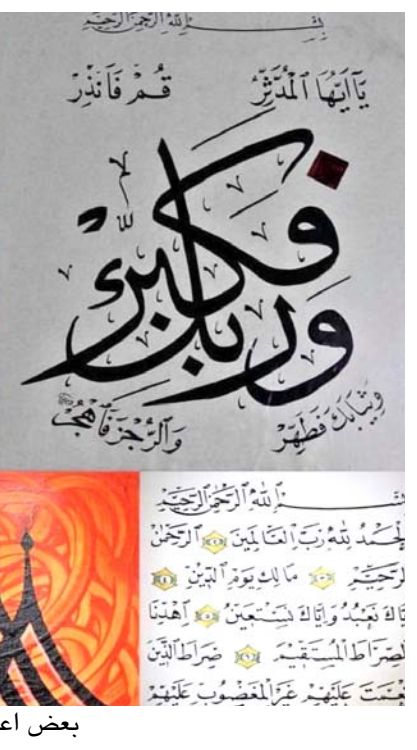 بِسْمِ ٱللَّهِ ٱلرَّحْمَٰنِ ٱلرَّحِيمِ
يَآأَيُّهَا ٱلْمُدَّثِّرُ قُمْ فَأَنْذِرْ
وَرَبَّكَ فَكَبِّرْ
وَثِيَابَكَ فَطَهِّرْ وَٱلرُّجْزَ فَٱهْجُرْ
بِسْمِ ٱللَّهِ ٱلرَّحْمَٰنِ ٱلرَّحِيمِ
ٱلْحَمْدُ لِلَّهِ رَبِّ ٱلْعَالَمِينَ ٱلرَّحْمَٰنِ
ٱلرَّحِيمِ مَالِكِ يَوْمِ ٱلدِّينِ
إِيَّاكَ نَعْبُدُ وَإِيَّاكَ نَسْتَعِينُ ٱهْدِنَا
ٱلصِّرَاطَ ٱلْمُسْتَقِيمَ صِرَاطَ ٱلَّذِينَ
أَنْعَمْتَ عَلَيْهِمْ غَيْرِ ٱلْمَغْضُوبِ عَلَيْهِمْ
بعض